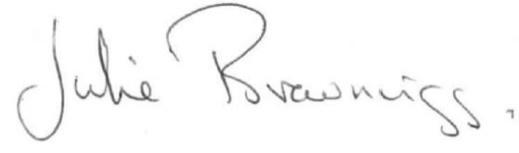 Julie Brownrigg.